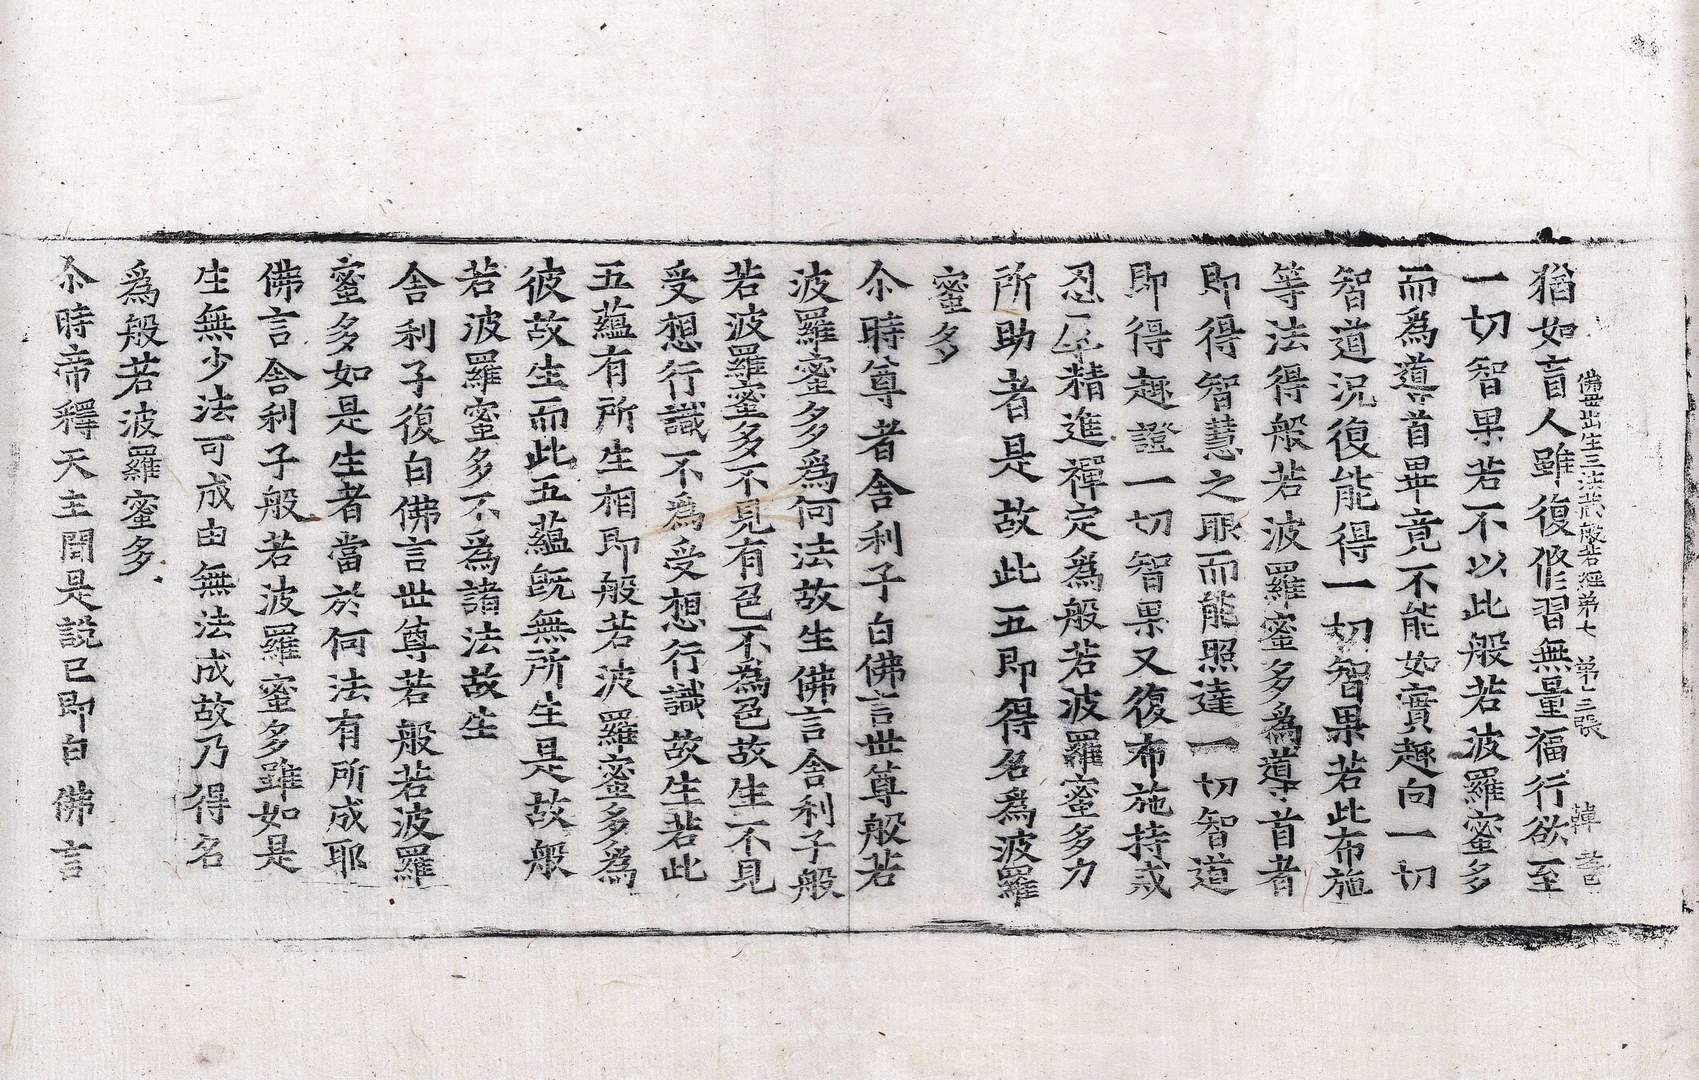 佛母出生三法藏般若經第七　第十三張　韓　
猶如盲人雖復修習無量福行欲至
一切智果若不以此般若波羅蜜多
而爲導首畢竟不能如實趣向一切
智道況復能得一切智果若此布施
等法得般若波羅蜜多爲導首者
即得智慧之眼而能照達一切智道
即得趣證一切智果又復布施持戒
忍辱精進禪定爲般若波羅蜜多力
所助者是故此五即得名爲波羅
蜜多
尒時尊者舍利子白佛言世尊般若
波羅蜜多爲何法故生佛言舍利子般
若波羅蜜多不見有色不為色故生不見
受想行識不爲受想行識故生若此
五蘊有所生相即般若波羅蜜多爲
彼故生而此五蘊旣無所生是故般
若波羅蜜多不爲諸法故生
舍利子復白佛言世尊若般若波羅
蜜多如是生者當於何法有所成耶
佛言舍利子般若波羅蜜多雖如是
生無少法可成由無法成故乃得名
爲般若波羅蜜多
尒時帝釋天主聞是說已即白佛言